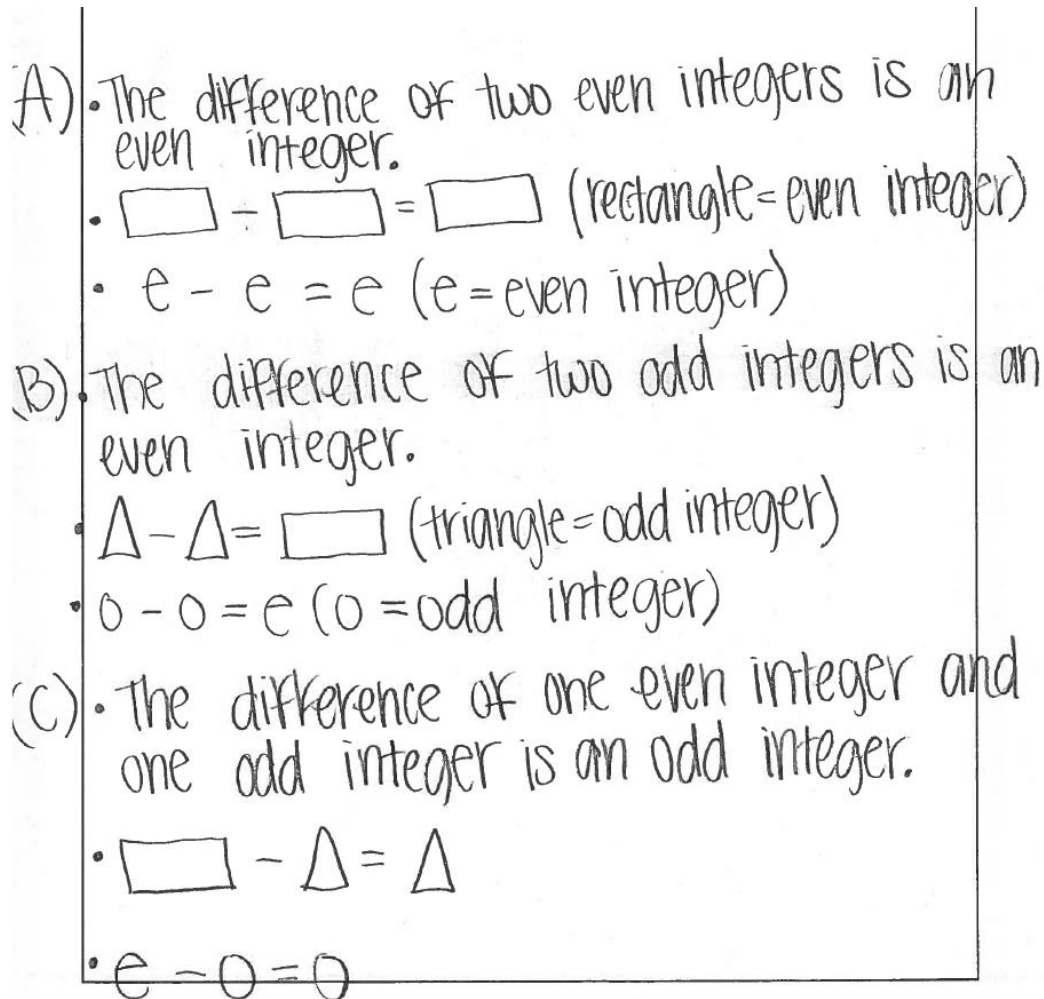 (A) • The difference of two even integers is an
even integer.
• ▭ - ▭ = ▭ (rectangle = even integer)
• e - e = e (e = even integer)
(B) • The difference of two odd integers is an
even integer.
• Δ - Δ = ▭ (triangle = odd integer)
• o - o = e (o = odd integer)
(C) • The difference of one even integer and
one odd integer is an odd integer.
• ▭ - Δ = Δ
• e - o = o